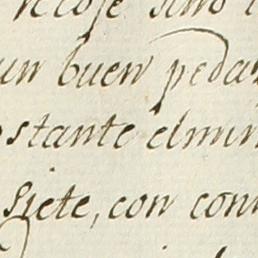 recoje sino
un buen peda
ostante elmin
siete, con con